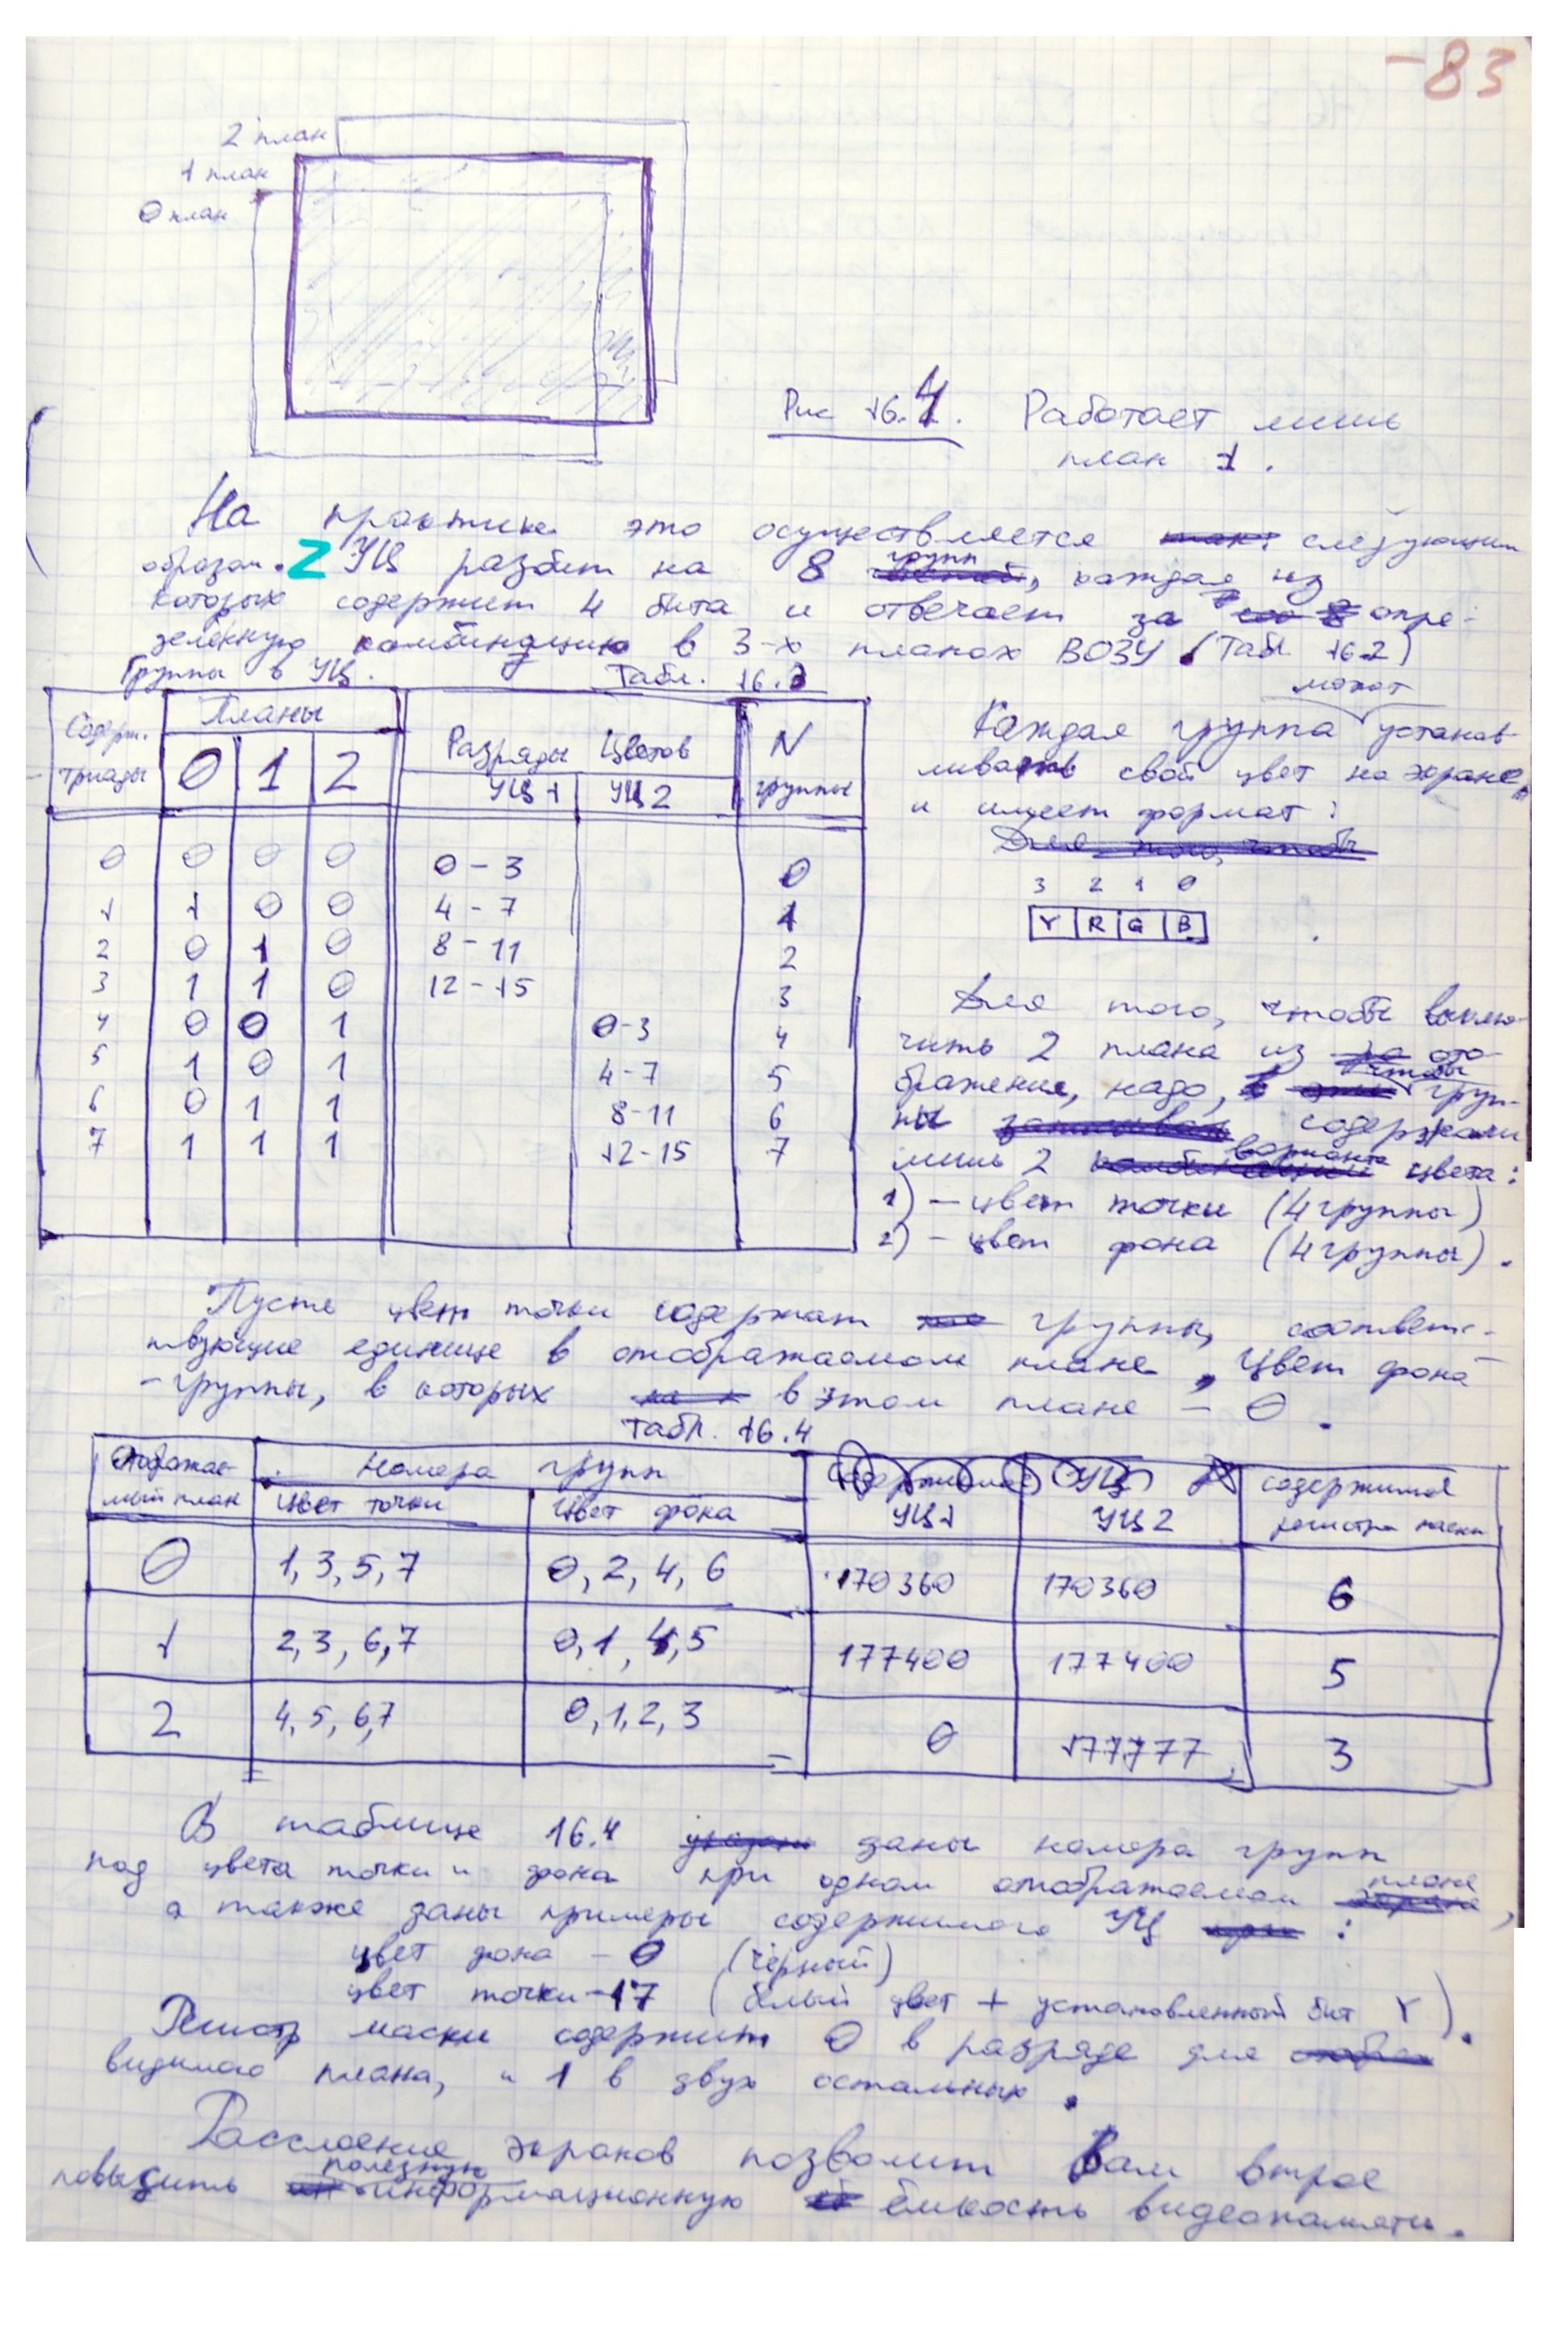 -83
2 план
1 план
0 план
Рис 16.4. Работает лишь
план 1.
На практике это осуществляется следующим
образом. УЦ разбит на 8 групп, каждая из
которых содержит 4 бита и отвечает за опре-
деленную комбинацию в 3-х планах ВОЗУ (Табл. 16.2)
Группы в УЦ. Табл. 16.3
Содерж. триады | Планы | Разряды Цветов | N группы
0 | 1 | 2 | УЦ 1 | УЦ 2
0 0 0 0 0-3 0
1 1 0 0 4-7 1
2 0 1 0 8-11 2
3 1 1 0 12-15 3
4 0 0 1 0-3 4
5 1 0 1 4-7 5
6 0 1 1 8-11 6
7 1 1 1 12-15 7
Каждая группа может устанав-
ливать свой цвет на экране,
и имеет формат:
Для того, чтобы
3 2 1 0
Y R G B
Для того, чтобы выклю-
чить 2 плана из ото-
бражения, надо, чтобы груп-
пы содержали
лишь 2 варианта цвета:
1) - цвет точки (4 группы)
2) - цвет фона (4 группы).
Пусть цвет точки содержат группы, соответс-
твующие единице в отображаемом плане, Цвет фона
- группы, в которых в этом плане - 0.
Табл. 16.4
Отображае-мый план | Номера групп | Содержимое УЦ | содержимое регистра маски
Цвет точки | Цвет фона | УЦ1 | УЦ2
0 1,3,5,7 0,2,4,6 170360 170360 6
1 2,3,6,7 0,1,4,5 177400 177400 5
2 4,5,6,7 0,1,2,3 0 177777 3
В таблице 16.4 указаны даны номера групп
под цвета точки и фона при одном отображаемом плане экране,
а также даны примеры содержимого УЦ при:
цвет фона - 0 (чёрный)
цвет точки - 17 (белый цвет + установленный бит Y).
Регистр маски содержит 0 в разряде для
видимого плана, и 1 в двух остальных.
Расслоение экранов позволит Вам втрое
повысить полезную информационную ёмкость видеопамяти.